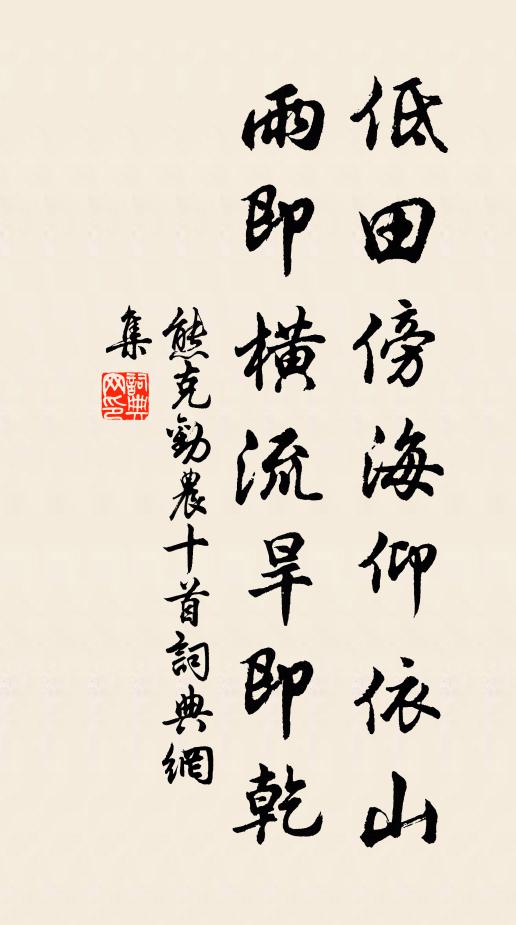 低田傍海仰依山
雨即橫流旱即乾
熊克勸農十首詞典網
集
詞典
网印